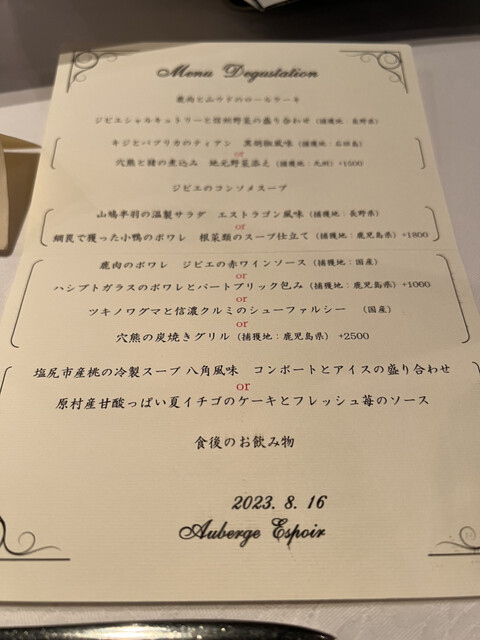 Menu Degustation
鹿肉と山ウドのロールケーキ
ジビエシャルキュトリーと信州野菜の盛り合わせ (捕獲地:長野県)
キジとパプリカのティアン 黒胡椒風味 (捕獲地:石垣島)
or
穴熊と猪の煮込み 地元野菜添え (捕獲地:九州) +1500
ジビエのコンソメスープ
山鳩半羽の温製サラダ エストラゴン風味 (捕獲地:長野県)
or
網罠で獲った小鴨のポワレ 根菜類のスープ仕立て (捕獲地:鹿児島県) +1800
鹿肉のポワレ ジビエの赤ワインソース (捕獲地:国産)
or
ハシブトガラスのポワレとパートブリック包み (捕獲地:鹿児島県) +1000
or
ツキノワグマと信濃クルミのシューファルシー (国産)
or
穴熊の炭焼きグリル (捕獲地:鹿児島県) +2500
塩尻市産桃の冷製スープ 八角風味 コンポートとアイスの盛り合わせ
or
原村産甘酸っぱい夏イチゴのケーキとフレッシュ苺のソース
食後のお飲み物
2023. 8. 16
Auberge Espoir